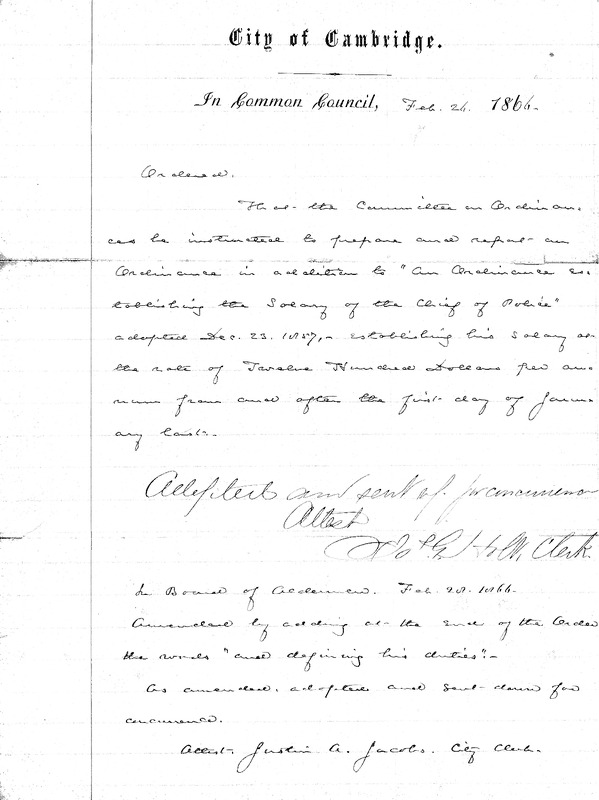 City of Cambridge.
In Common Council, Feb. 26. 1866.
Ordered.
That the Committee on Ordinan-
ces be instructed to prepare and report an
Ordinance in addition to "An Ordinance es-
tablishing the Salary of the Chief of Police"
adopted Dec. 23. 1857,- establishing his salary at
the rate of Twelve Hundred Dollars per an-
num from and after the first day of Janu-
ary last.
Adopted and sent up for concurrence
Attest
Clerk.
In Board of Aldermen. Feb. 28. 1866.
Amended by adding at the end of the Order
the words "and defining his duties".-
As amended, adopted and sent down for
concurrence.
Attest. Justin A. Jacobs. City Clerk.